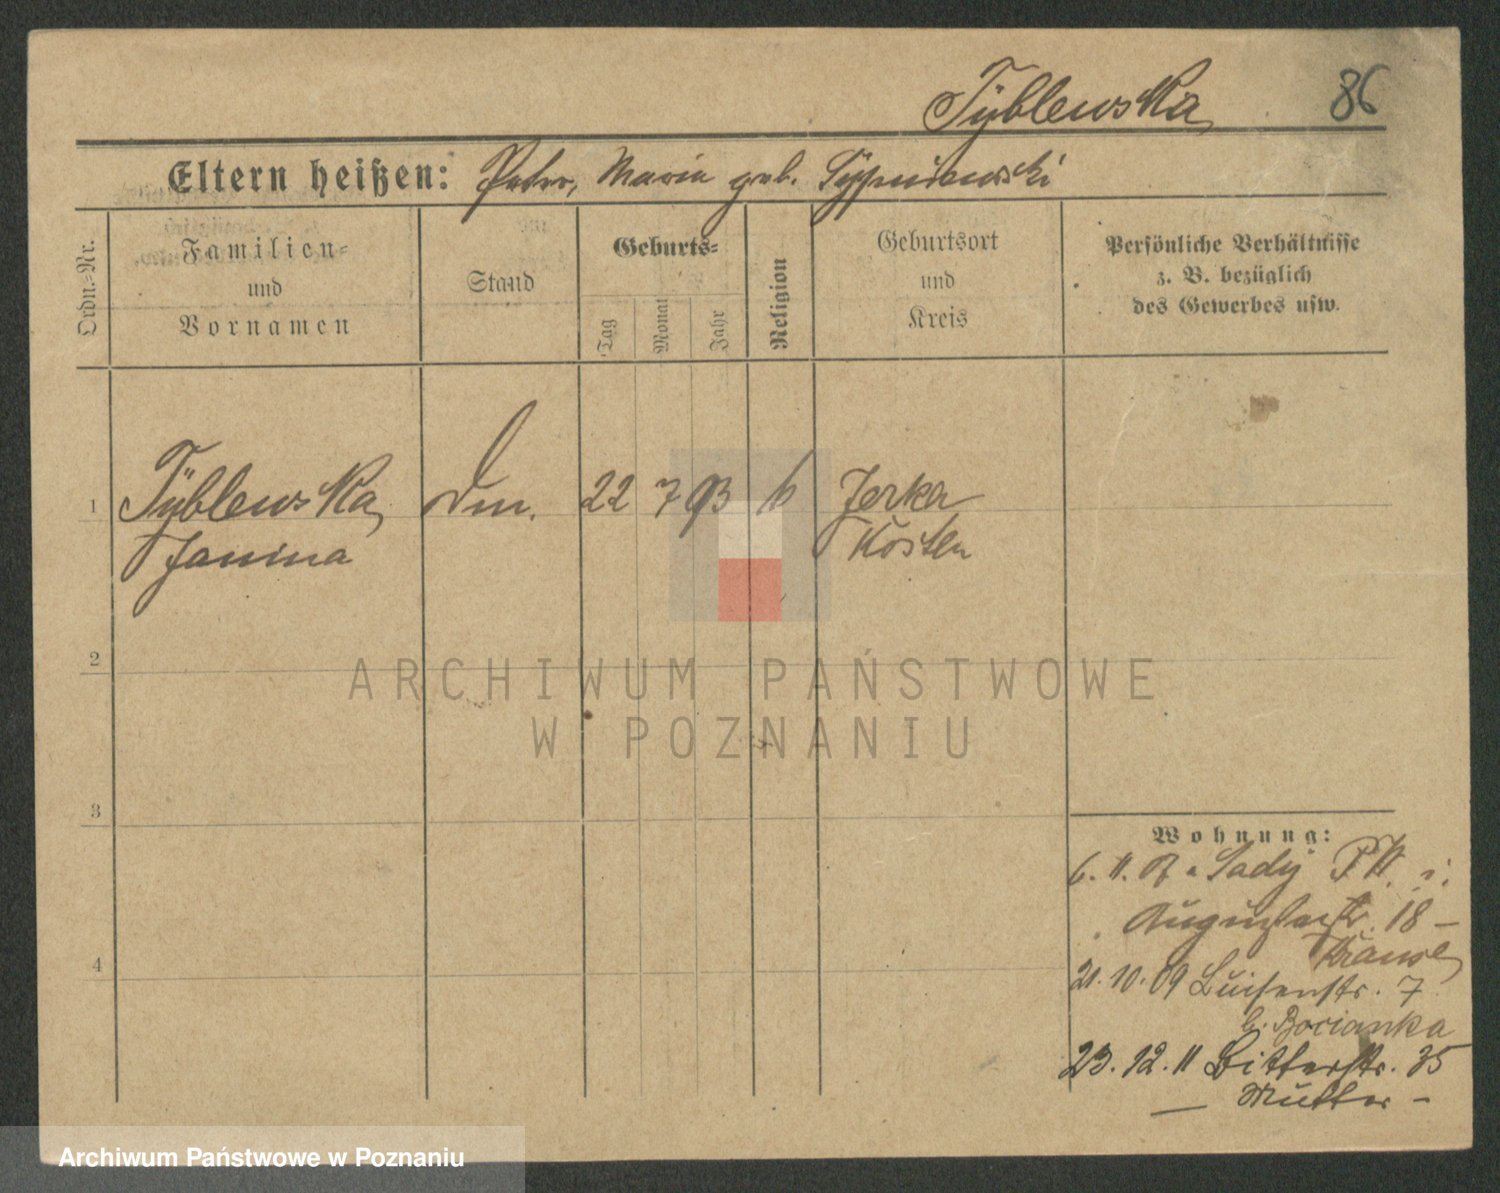 Tÿblewska
86
Eltern heißen: Peter, Maria geb. Sypniewski
Ordn.-Nr.
Familien-
und
Vornamen
Stand
Geburts-
Tag
Monat
Jahr
Religion
Geburtsort
und
Kreis
Persönliche Verhältnisse
z. B. bezüglich
des Gewerbes usw.
1
Tÿblewska, 22 7 93 Jerka
Janina Kosten
2
3
4
ARCHIWUM PAŃSTWOWE
W POZNANIU
Wohnung:
6. 11. Sady
18 –
Krause
21. 10. 09 Luisenstr. 7
b. Bocianka
23. 12. 11 Bitterstr. 35
— Mutter –
Archiwum Państwowe w Poznaniu